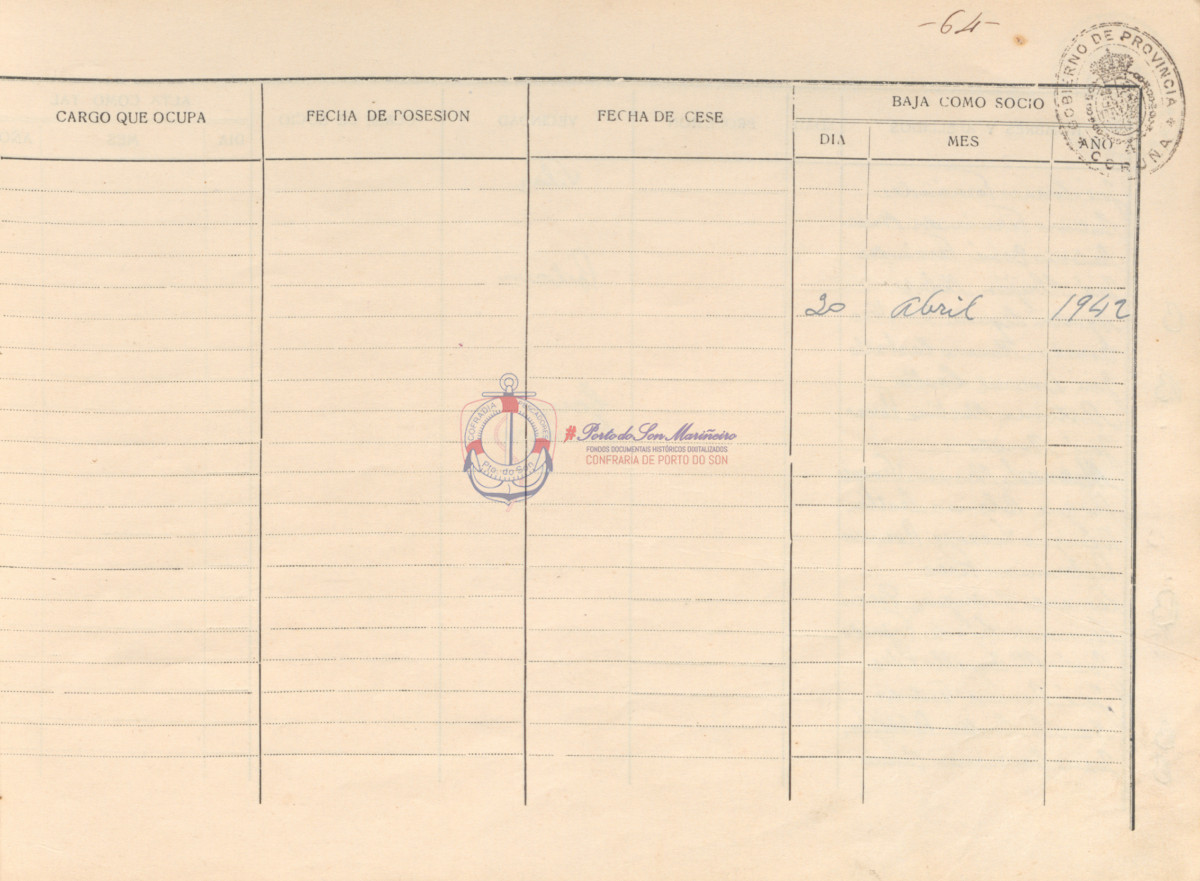 -64-
GOBIERNO DE PROVINCIA
CORUÑA
CARGO QUE OCUPA
FECHA DE POSESION
FECHA DE CESE
BAJA COMO SOCIO
DIA
MES
AÑO
20 abril 1942
COFRADIA PESCADORES
Pto. do Son
# Porto do Son Mariñeiro
FONDOS DOCUMENTAIS HISTÓRICOS DIXITALIZADOS
CONFRARÍA DE PORTO DO SON